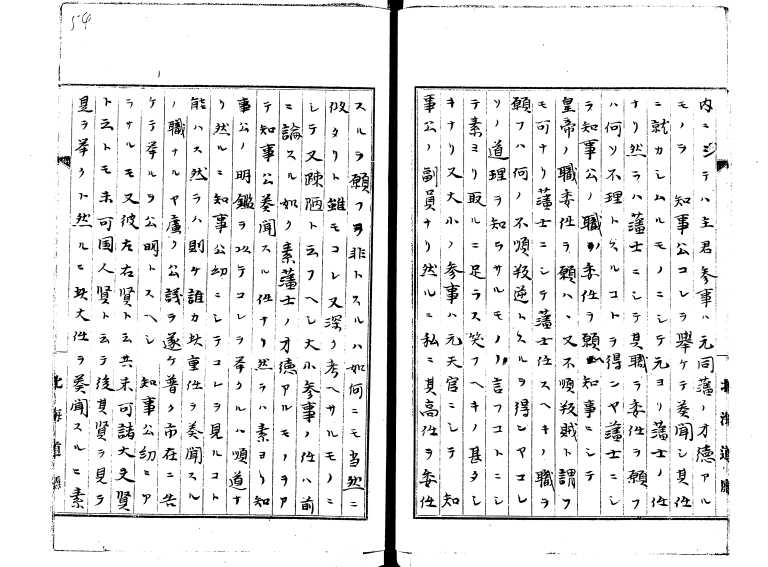 内ニシテハ主君参事ハ元同藩ノ才徳アル
モノヲ 知事公コレヲ擧ケテ奏聞シ其任
ニ就カシムルモノニシテ元ヨリ藩士ノ任
ナリ然ラハ藩士ニシテ其職ヲ委任ヲ願フ
ハ何ソ不理トスルコトヲ得ンヤ藩士ニシ
テ知事公ノ職ヲ委任ヲ願知事ニシテ
皇帝ノ職委任ヲ願ハヽ又不順叛賊ト謂フ
モ可ナリ藩士ニシテ藩士任スヘキノ職ヲ
願フハ何ノ不順叛逆トスルヲ得ンヤコレ
ソノ道理ヲ知ラサルモノヽ言フコトニシ
テ素ヨリ取ルニ足ラス笑フヘキノ甚タシ
キナリ又大小ノ参事ハ元天官ニシテ 知
事公ノ副員ナリ然ルニ私ニ其高任ヲ委任
北海道廳
54
スルヲ願フヲ非トスルハ如何ニモ当然ニ
似タリト雖モコレ又深ク考ヘサルモノニ
シテ又疎陋ト云フヘシ大小参事ノ任ハ前
ニ論スル如ク素藩士ノ才徳アルモノヲア
テ知事公奏聞スル任ナリ然ラハ素ヨリ知
事公ノ明鑑ヲ以テコレヲ挙クルハ順道ナ
リ然ルニ知事公幼ニシテコレヲ見ルコト
能ハス然ラハ則ケ誰カ此重任ヲ奏聞スル
ノ職ナルヤ廣ク公議ヲ遂ケ普ク市在ニ告
ケテ挙ルヲ公明トスヘシ 知事公幼ニア
ラサルモ又彼左右賢ト云共未可諸大夫賢
ト云トモ未可国人賢ト云テ後其賢ヲ見テ
見ヲ挙クト然ルニ此大任ヲ奏聞スルニ素
北海道廳